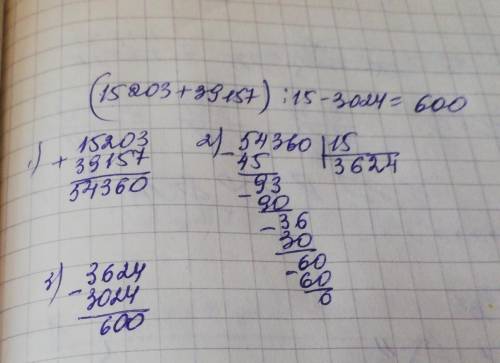 (15203+39157):15-3024=600
1) 15203
+ 39157
54360
2) 54360 | 15
- 45 3624
93
- 90
- 36
30
60
- 60
0
3) 3624
- 3024
600